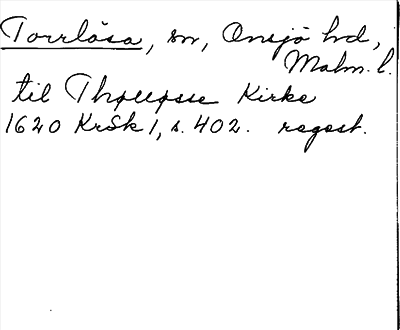 Torrlösa, sn, Onsjö hrd,
Malm. l.
til Thoueøsse Kirke
1620 KrSk 1, s. 402. regest.